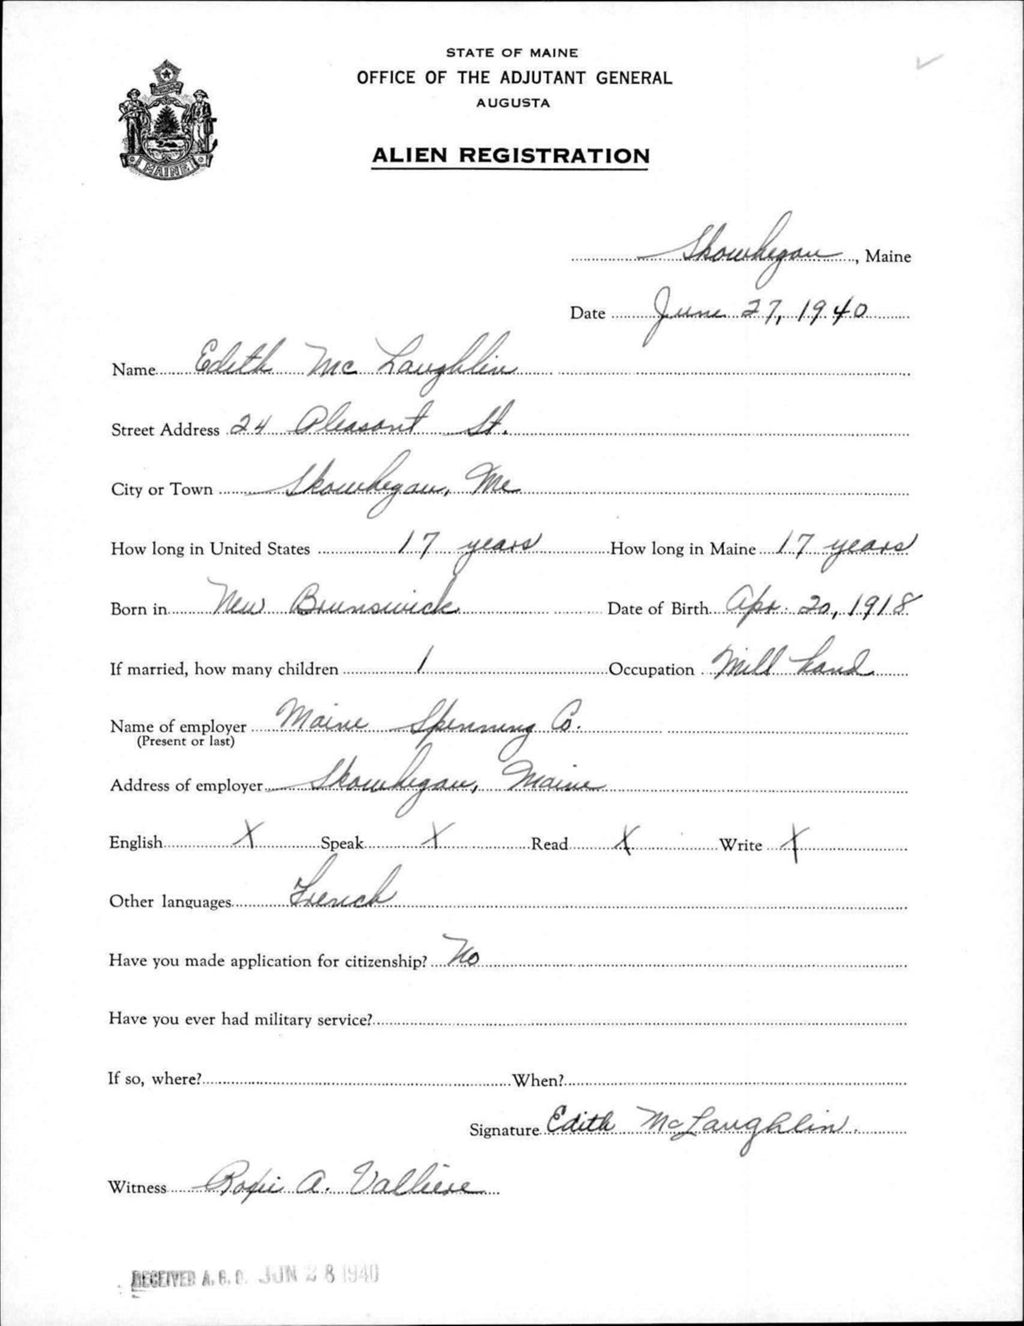 STATE OF MAINE
OFFICE OF THE ADJUTANT GENERAL
AUGUSTA
ALIEN REGISTRATION
MAINE
Skowhegan, Maine
Date June 27, 1940
Name Edith McLaughlin
Street Address 24 Pleasant St.
City or Town Skowhegan, Me
How long in United States 17 years How long in Maine 17 years
Born in New Brunswick Date of Birth Apr. 20, 1918
If married, how many children 1 Occupation Mill hand
Name of employer Maine Spinning Co.
(Present or last)
Address of employer Skowhegan, Maine
English X Speak X Read X Write X
Other languages French
Have you made application for citizenship? No
Have you ever had military service?
If so, where? When?
Signature Edith McLaughlin.
Witness A. Valliere
RECEIVED A. G. O. JUN 28 1940